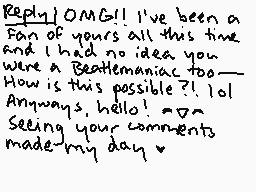 Reply | OMG!! I've been a
fan of yours all this time
and I had no idea you
were a Beatlemaniac too —
How is this possible?! lol
Anyways, hello! ^▽^
Seeing your comments
made my day ♥